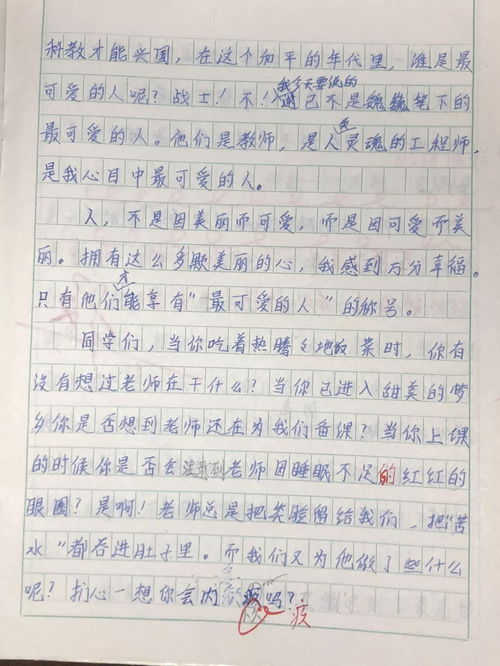 科教才能兴国，在这个和平的年代里，谁是最
我今天要说的
可爱的人呢？战士！不！已不是魏巍笔下的
最可爱的人。他们是教师，是人类灵魂的工程师，
是我心目中最可爱的人。
人，不是因美丽而可爱，而是因可爱而美
丽。拥有这么多颗美丽的心，我感到万分幸福。
只有他们才能享有“最可爱的人”的称号。
同学们，当你吃着热腾々地饭菜时，你有
没有想过老师在干什么？当你已进入甜美的梦
乡你是否想到老师还在为我们备课？当你上课
的时候你是否会注意到老师因睡眠不足的红红的
眼圈？是啊！老师总是把笑脸留给我们，把“苦
水”都吞进肚子里。而我们又为他做了些什么
呢？扪心一想你会内疚吗？
疚